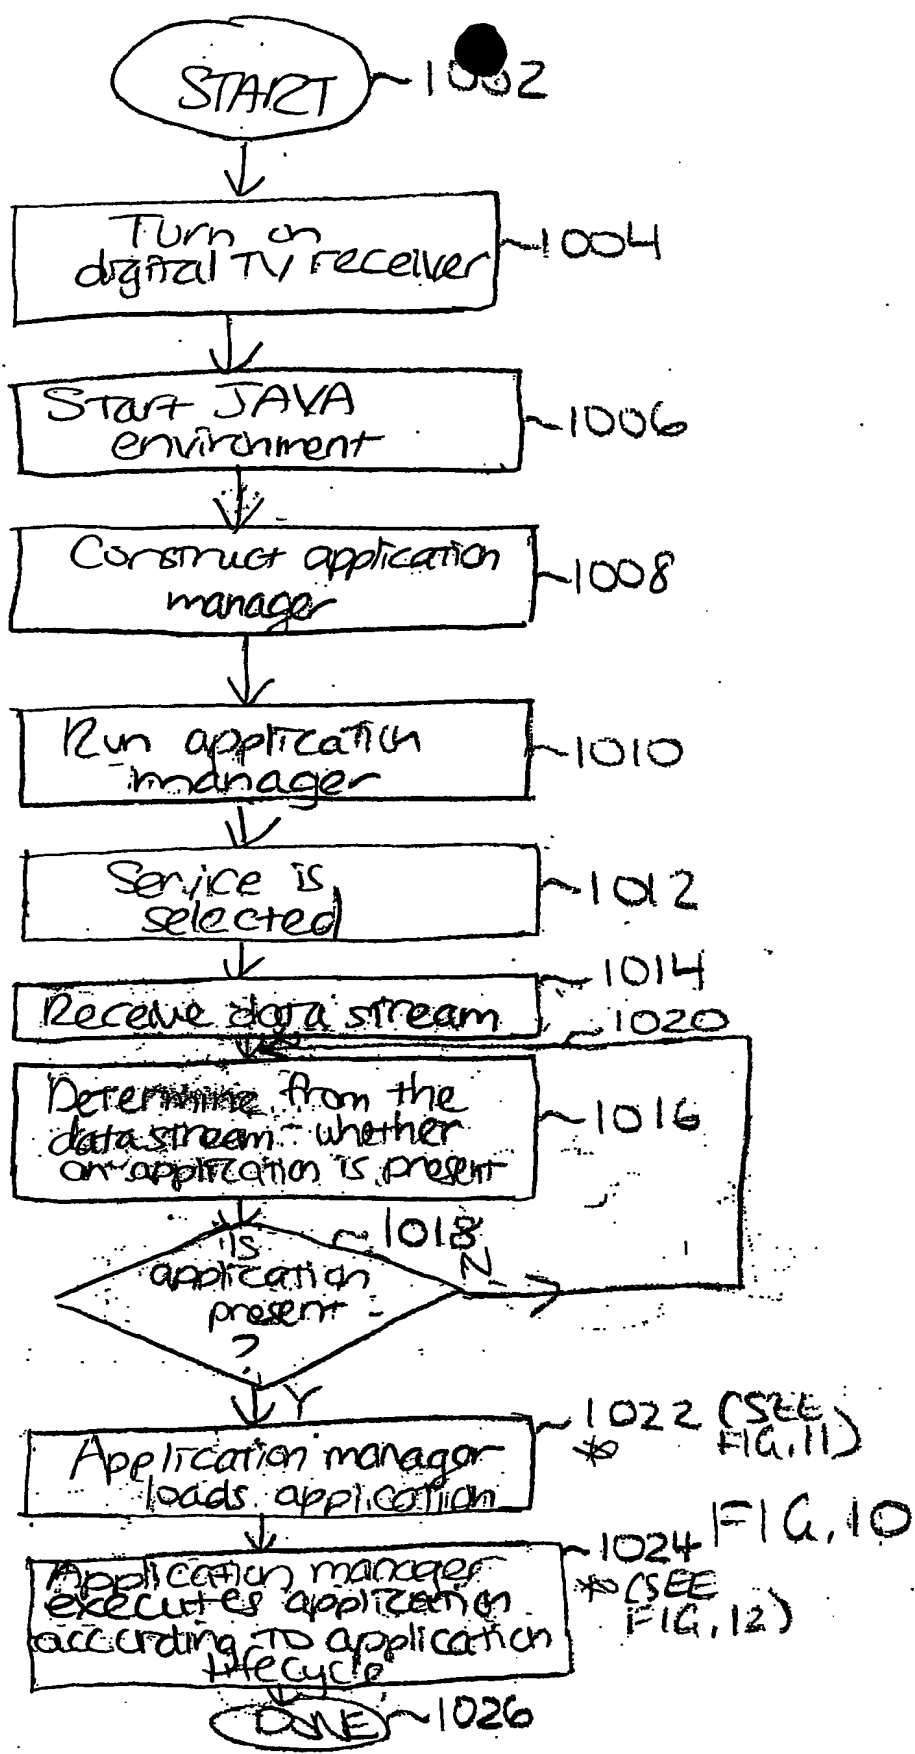 START
1002
Turn on
digital TV receiver
1004
Start JAVA
environment
1006
Construct application
manager
1008
Run application
manager
1010
Service is
selected
1012
Receive data stream
1014
1020
Determine from the
data stream whether
an application is present
1016
Is
application
present
?
1018
N
Y
Application manager
loads application
1022 (SEE
* FIG. 11)
FIG. 10
Application manager
executes application
according to application
lifecycle
1024
* (SEE
FIG. 12)
DONE
1026